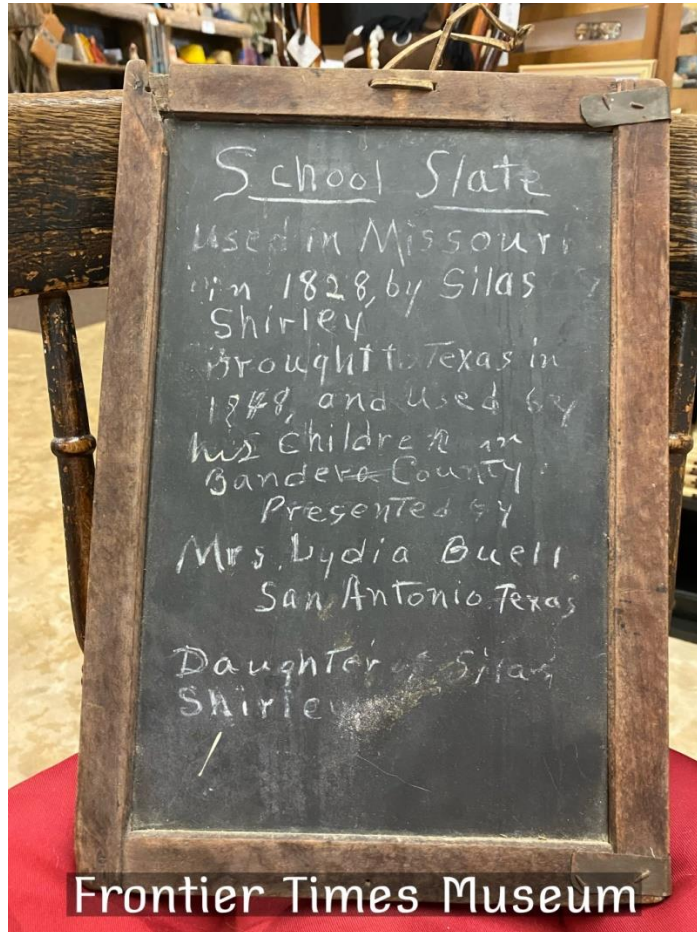 School Slate
Used in Missouri
in 1828, by Silas
Shirley
Brought to Texas in
1848, and used by
his children in
Bandera County
Presented by
Mrs. Lydia Buell
San Antonio Texas
Daughter of Silas
Shirley
Frontier Times Museum